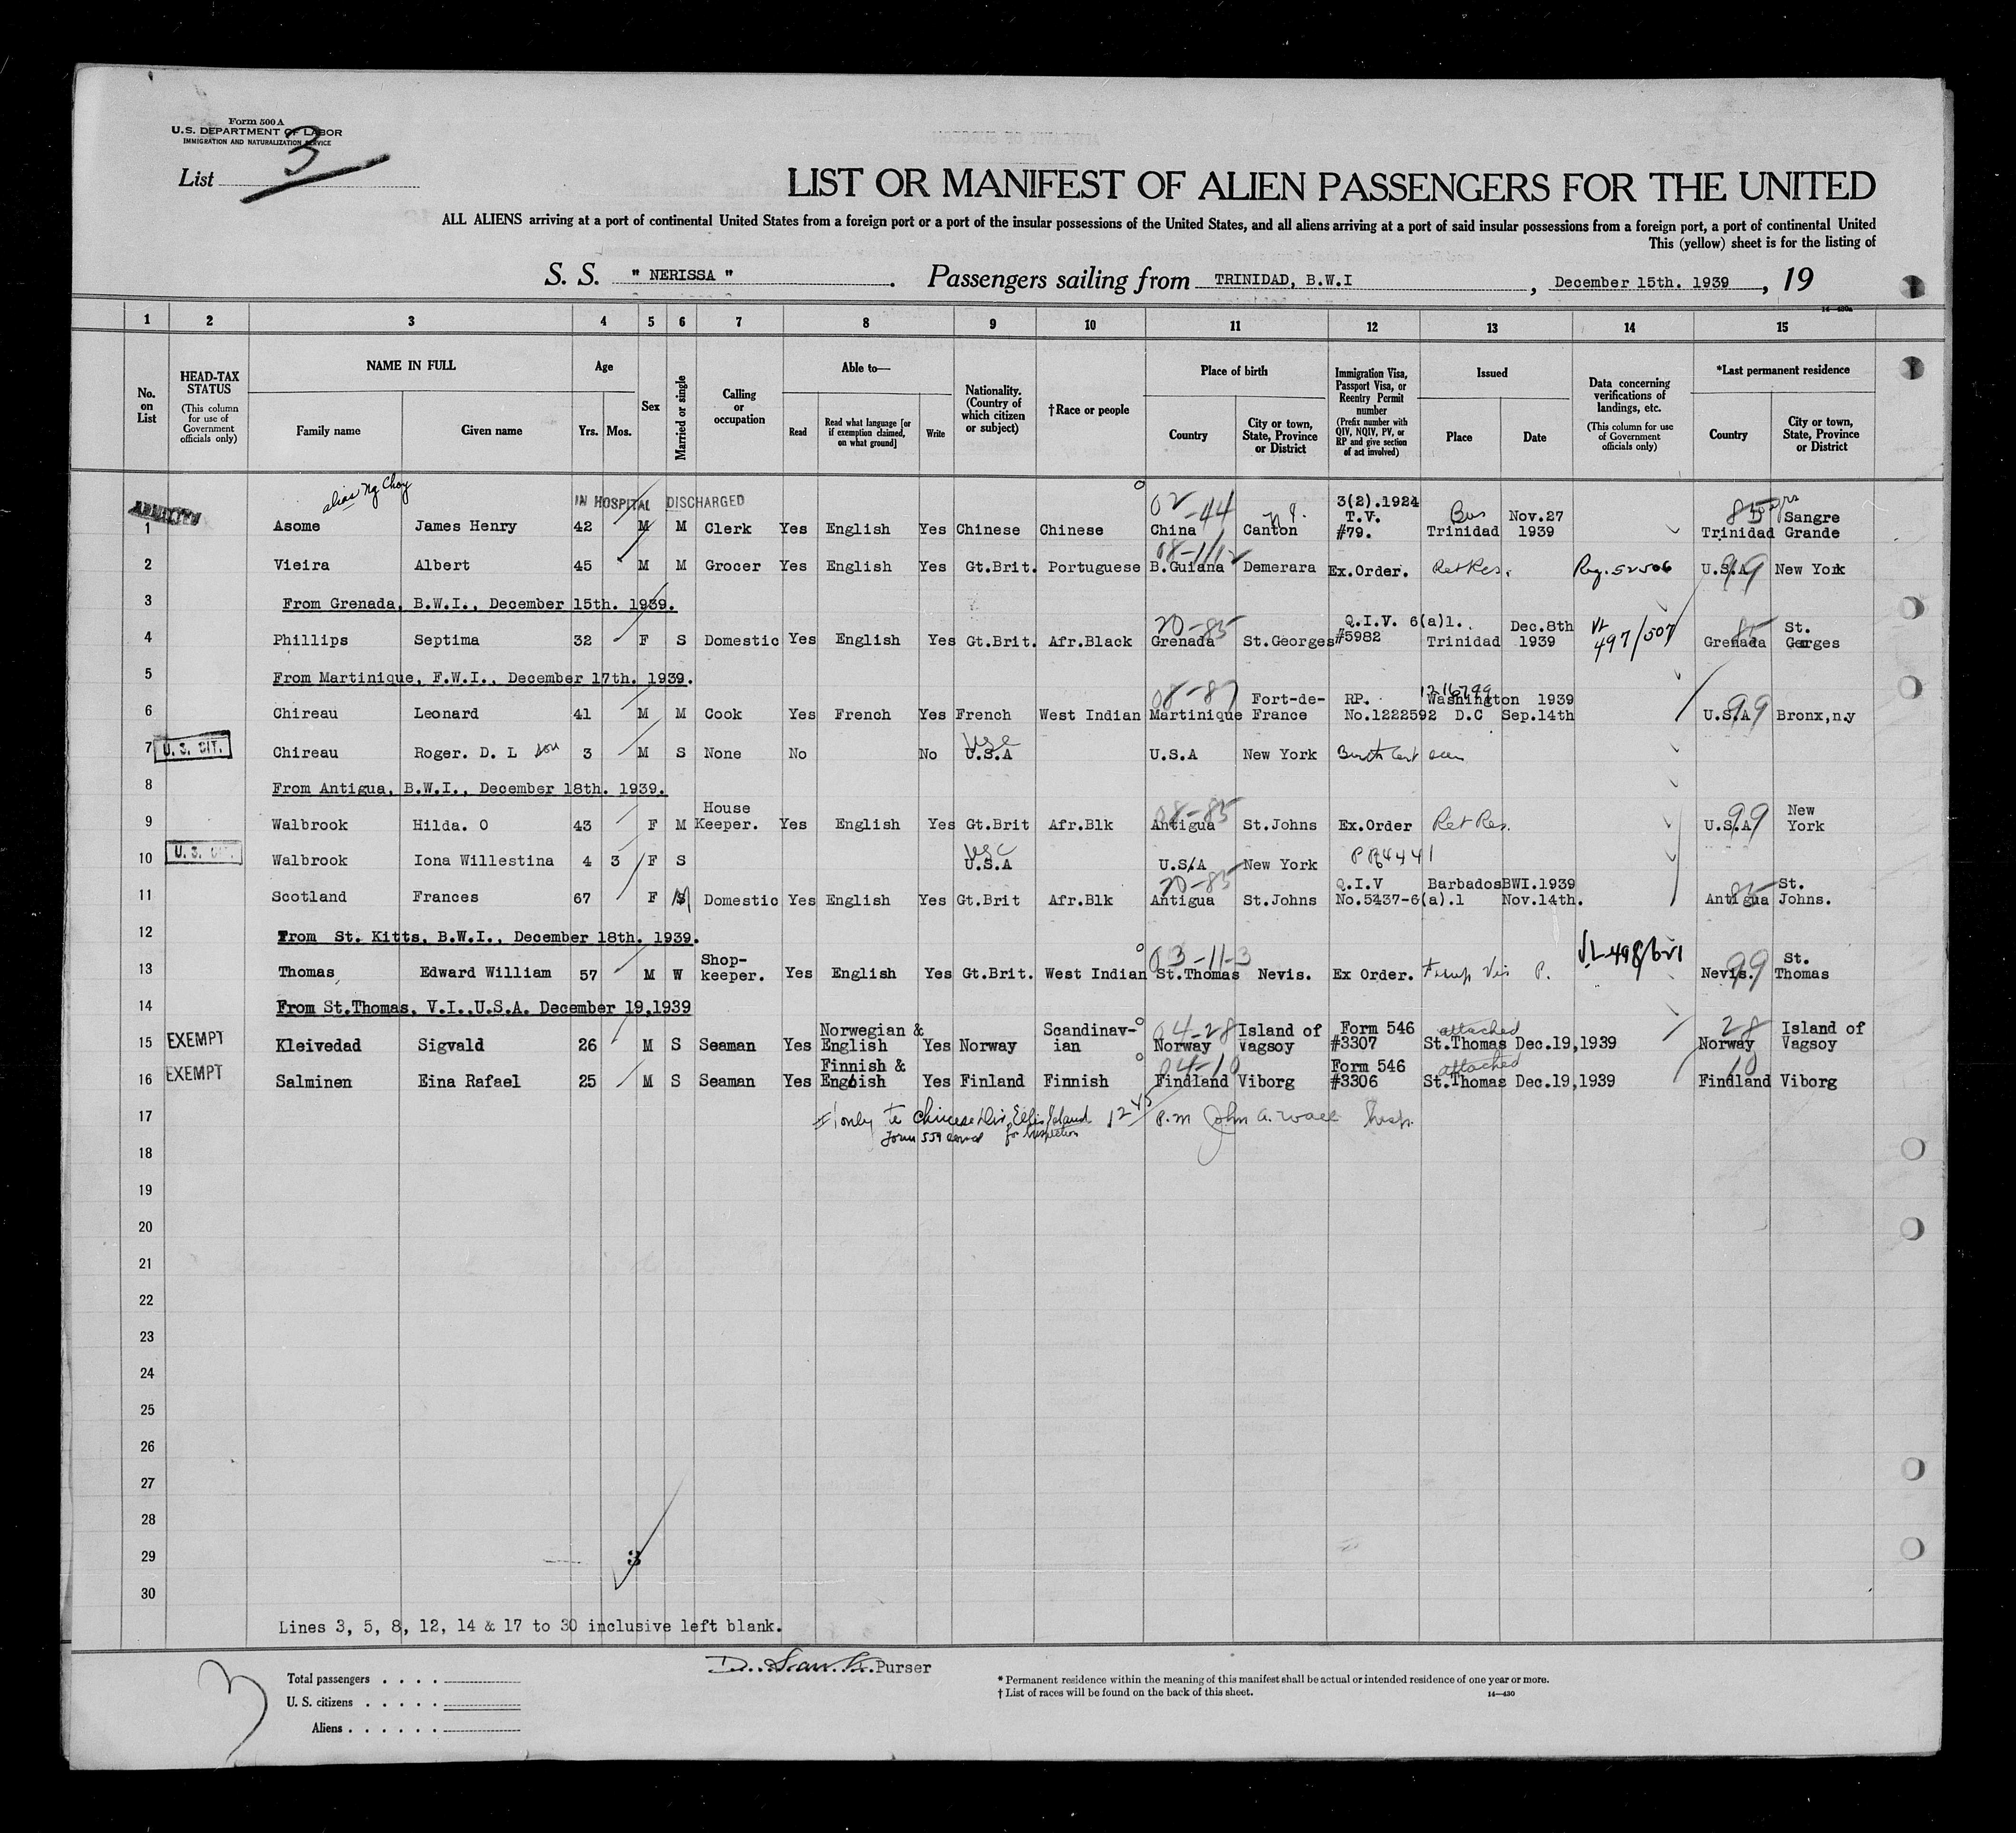 Form 500 A
U.S. DEPARTMENT OF LABOR
IMMIGRATION AND NATURALIZATION SERVICE
List 3
LIST OR MANIFEST OF ALIEN PASSENGERS FOR THE UNITED
ALL ALIENS arriving at a port of continental United States from a foreign port or a port of the insular possessions of the United States, and all aliens arriving at a port of said insular possessions from a foreign port, a port of continental United
This (yellow) sheet is for the listing of
S. S. " NERISSA " . Passengers sailing from TRINIDAD, B.W.I , December 15th. 1939 , 19
14-430a
1 2 3 4 5 6 7 8 9 10 11 12 13 14 15
No. on List
HEAD-TAX STATUS (This column for use of Government officials only)
NAME IN FULL Family name Given name
Age Yrs. Mos.
Sex
Married or single
Calling or occupation
Able to— Read Read what language [or if exemption claimed, on what ground] Write
Nationality. (Country of which citizen or subject)
† Race or people
Place of birth Country City or town, State, Province or District
Immigration Visa, Passport Visa, or Reentry Permit number (Prefix number with QIV, NQIV, PV, or RP and give section of act involved)
Issued Place Date
Data concerning verifications of landings, etc. (This column for use of Government officials only)
*Last permanent residence Country City or town, State, Province or District
alias Ng Choy IN HOSPITAL DISCHARGED
ADMITTED 1 Asome James Henry 42 M M Clerk Yes English Yes Chinese Chinese 02-44 China Canton 3(2).1924 T.V. #79. Trinidad Nov.27 1939 85 Trinidad Sangre Grande
2 Vieira Albert 45 M M Grocer Yes English Yes Gt.Brit. Portuguese B.Guiana Demerara Ex.Order. Ret Res. Reg. 52506 U.S.A 99 New York
3 From Grenada, B.W.I., December 15th. 1939.
4 Phillips Septima 32 F S Domestic Yes English Yes Gt.Brit. Afr.Black 20-85 Grenada St.Georges Q.I.V. 6(a)1. #5982 Trinidad Dec.8th 1939 497/507 Grenada 85 St. Gerges
5 From Martinique, F.W.I., December 17th. 1939.
6 Chireau Leonard 41 M M Cook Yes French Yes French West Indian 08-87 Martinique Fort-de-France RP. No.1222592 Washington D.C 1939 Sep.14th U.S.A 99 Bronx,n.y
7 U. S. CIT. Chireau Roger. D. L son 3 M S None No No usc U.S.A U.S.A New York Birth Cert seen
8 From Antigua, B.W.I., December 18th. 1939.
9 Walbrook Hilda. O 43 F M House Keeper. Yes English Yes Gt.Brit Afr.Blk 08-85 Antigua St.Johns Ex.Order Ret Res. U.S.A 99 New York
10 U. S. CIT. Walbrook Iona Willestina 4 3 F S usc U.S.A U.S.A New York
11 Scotland Frances 67 F S Domestic Yes English Yes Gt.Brit Afr.Blk 20-85 Antigua St.Johns Q.I.V No.5437-6(a).1 Barbados BWI.1939 Nov.14th. Antigua 85 St. Johns.
12 From St. Kitts, B.W.I., December 18th. 1939.
13 Thomas, Edward William 57 M W Shop-keeper. Yes English Yes Gt.Brit. West Indian 03-11-3 St.Thomas Nevis. Ex Order. Temp Vis P. Nevis. 99 St. Thomas
14 From St.Thomas, V.I.,U.S.A. December 19,1939
15 EXEMPT Kleivedad Sigvald 26 M S Seaman Yes Norwegian & English Yes Norway Scandinav-ian 04-28 Norway Island of Vagsoy Form 546 #3307 attached St.Thomas Dec.19,1939 28 Norway Island of Vagsoy
16 EXEMPT Salminen Eina Rafael 25 M S Seaman Yes Finnish & English Yes Finland Finnish 04-10 Findland Viborg Form 546 #3306 attached St.Thomas Dec.19,1939 10 Findland Viborg
17 #1 only to Chinese Div, Ellis Island 12 45 P.m John A. Wall Insp.
Form 559 served for Inspection
18
19
20
21
22
23
24
25
26
27
28
29 3
30
Lines 3, 5, 8, 12, 14 & 17 to 30 inclusive left blank.
Purser
3
Total passengers . . . .
U. S. citizens . . . . .
Aliens . . . . . .
* Permanent residence within the meaning of this manifest shall be actual or intended residence of one year or more.
† List of races will be found on the back of this sheet.
14-430